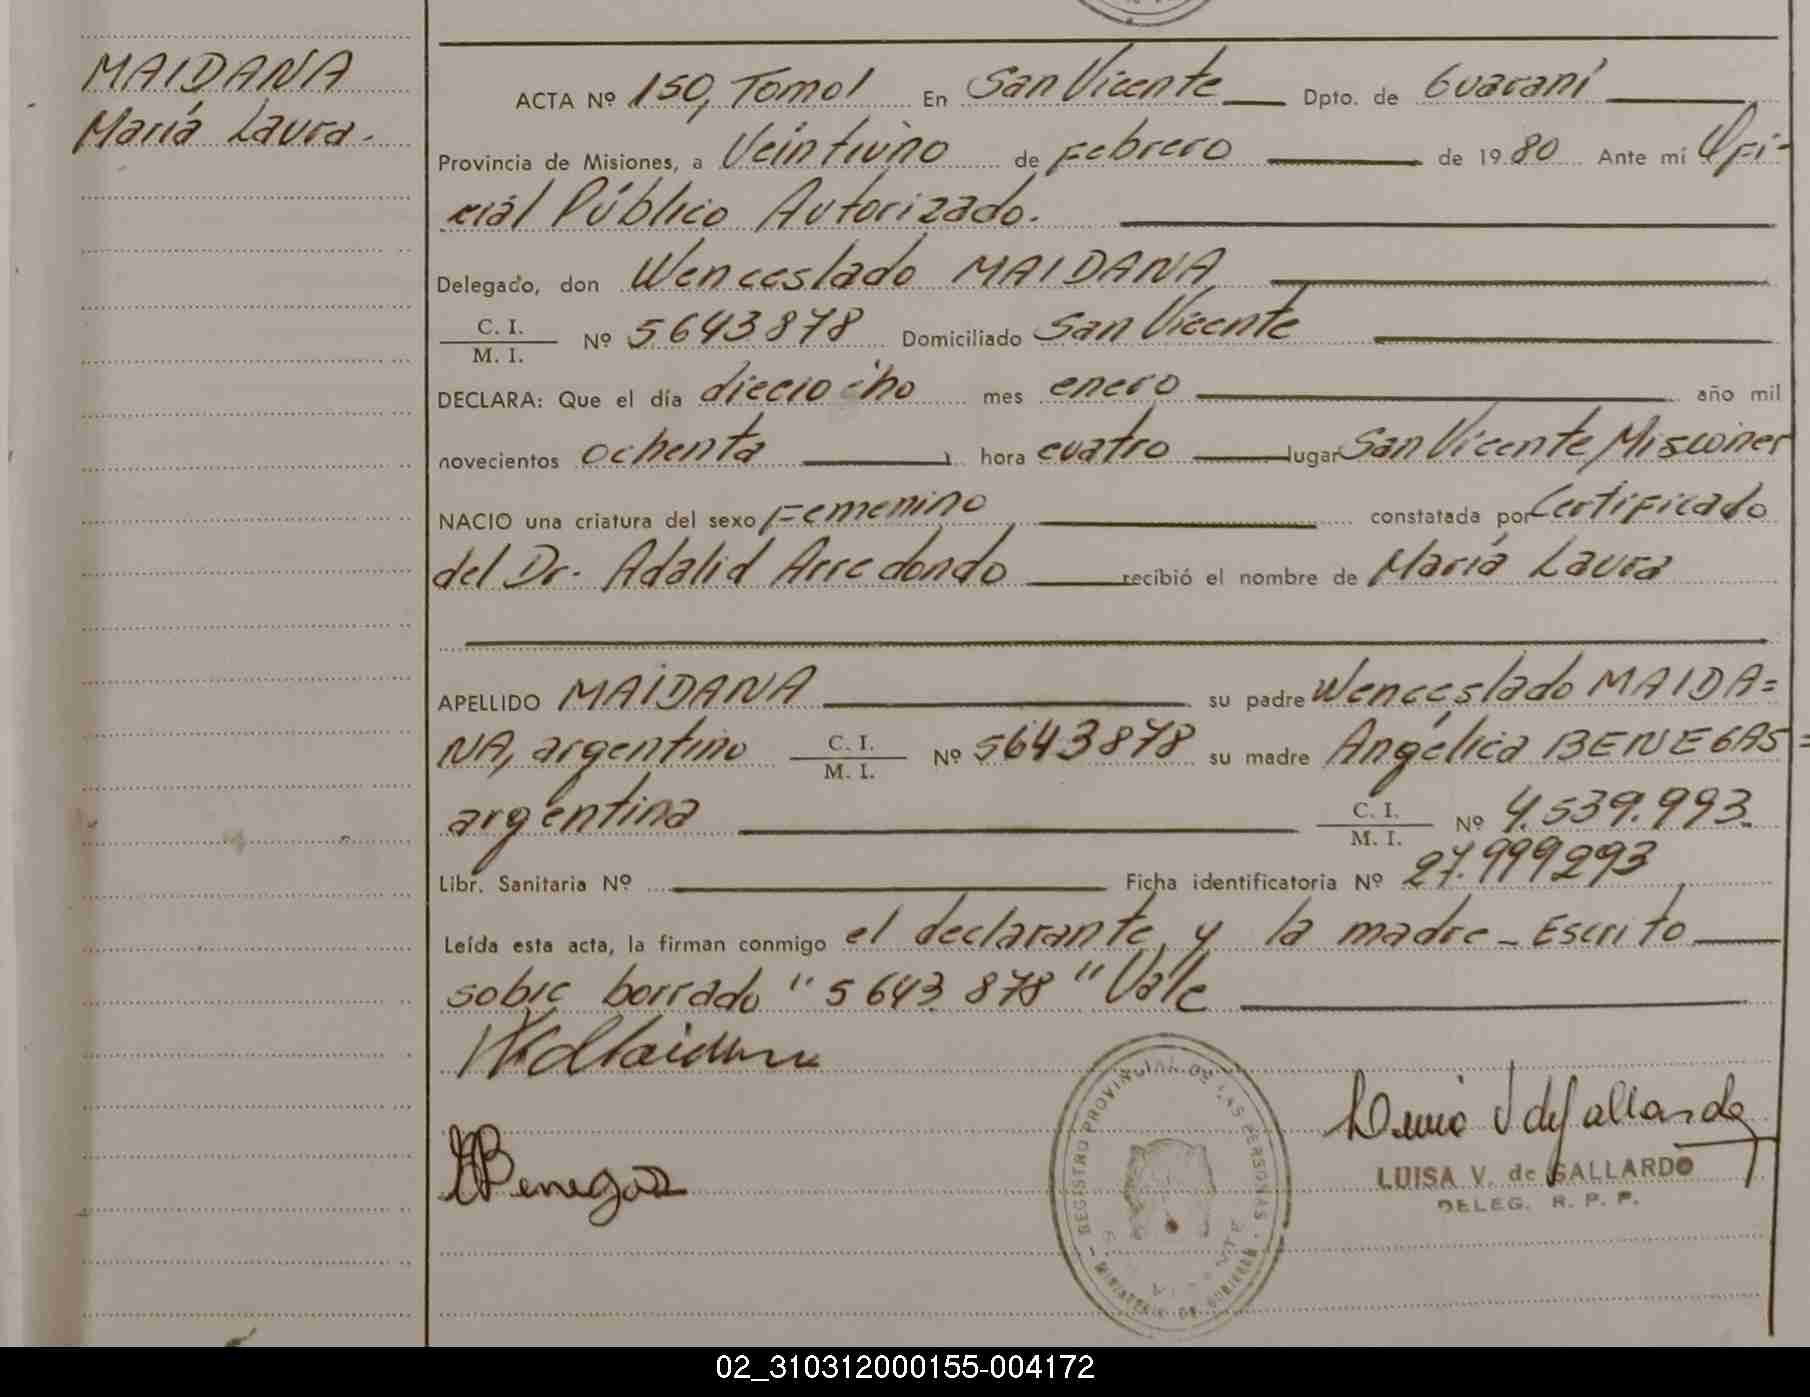 MAIDANA
María Laura.
ACTA Nº 150, Tomo I En San Vicente Dpto. de Guaraní
Provincia de Misiones, a Veintiuno de Febrero de 1980 Ante mí Ofi-
cial Público Autorizado.
Delegado, don Wenceslado MAIDANA
C. I.
M. I. Nº 5643878 Domiciliado San Vicente
DECLARA: Que el día dieciocho mes enero año mil
novecientos ochenta hora cuatro lugar San Vicente, Misiones
NACIO una criatura del sexo Femenino constatada por Certificado
del Dr. Adalid Arredondo recibió el nombre de María Laura
APELLIDO MAIDANA su padre Wenceslado MAIDA=
NA, argentino C. I. M. I. Nº 5643878 su madre Angélica BENEGAS=
argentina C. I. M. I. Nº 4.539.993.
Libr. Sanitaria Nº Ficha identificatoria Nº 27.999293
Leída esta acta, la firman conmigo el declarante, y la madre - Escrito
sobre borrado "5643 878" Vale
Benegas
REGISTRO PROVINCIAL DE LAS PERSONAS
MINISTERIO DE GOBIERNO
LUISA V. de GALLARDO
DELEG. R. P. P.
02_310312000155-004172